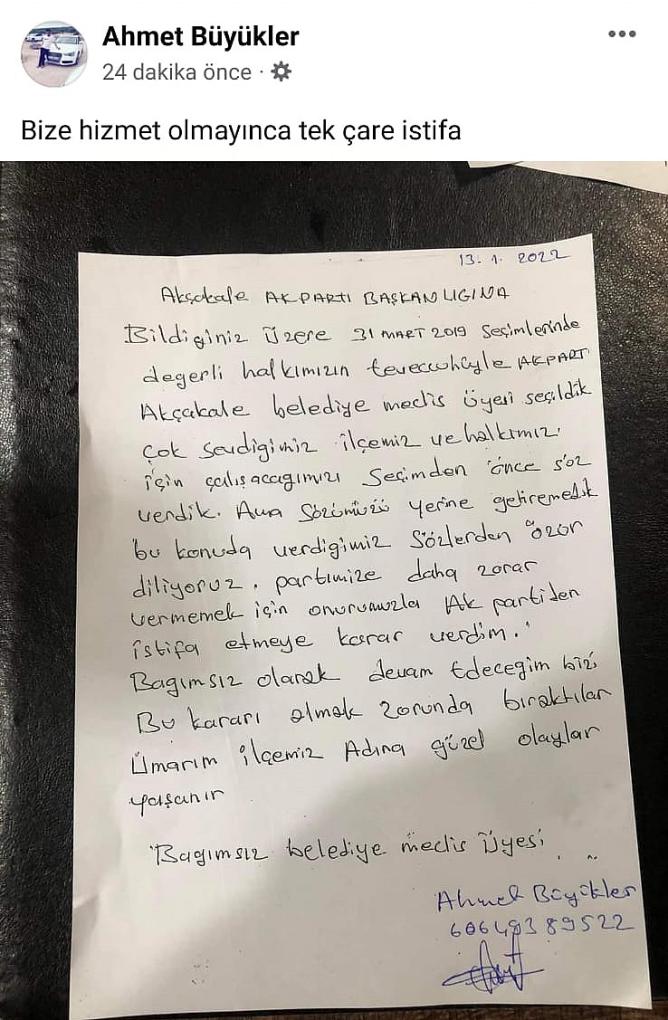 Ahmet Büyükler
24 dakika önce ·
Bize hizmet olmayınca tek çare istifa
13.1.2022
Akçakale AKPARTİ BAŞKANLIGINA
Bildiginiz Üzere 31 MART 2019 Seçimlerinde
degerli halkımızın teveccuhüyle AKPARTİ
Akçakale belediye meclis üyesi seçildik
çok sevdigimiz ilçemiz ve halkımız.
için çalışacagımızı Seçimden önce söz
verdik. Ama Sözümüzü yerine getiremedik
bu konuda verdigimiz Sözlerden özür
diliyoruz. partimize daha zarar
vermemek için onurumuzla AK partiden
istifa etmeye karar verdim.
Bagımsız olarak devam Edecegim bizi
Bu kararı almak zorunda bıraktılar
Umarım ilçemiz Adına güzel olaylar
yaşanır
Bagımsız belediye meclis Üyesi
Ahmet Büyükler
60648389522